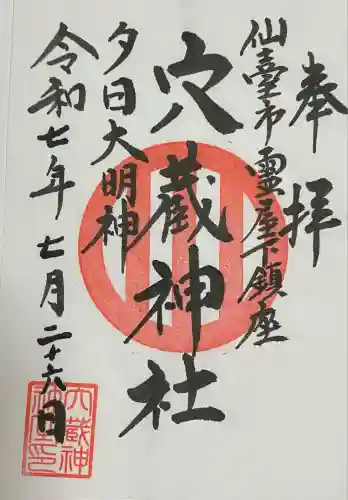 奉拝
仙臺市霊屋下鎮座
穴蔵神社
夕日大明神
令和七年七月二十六日
穴蔵神社印